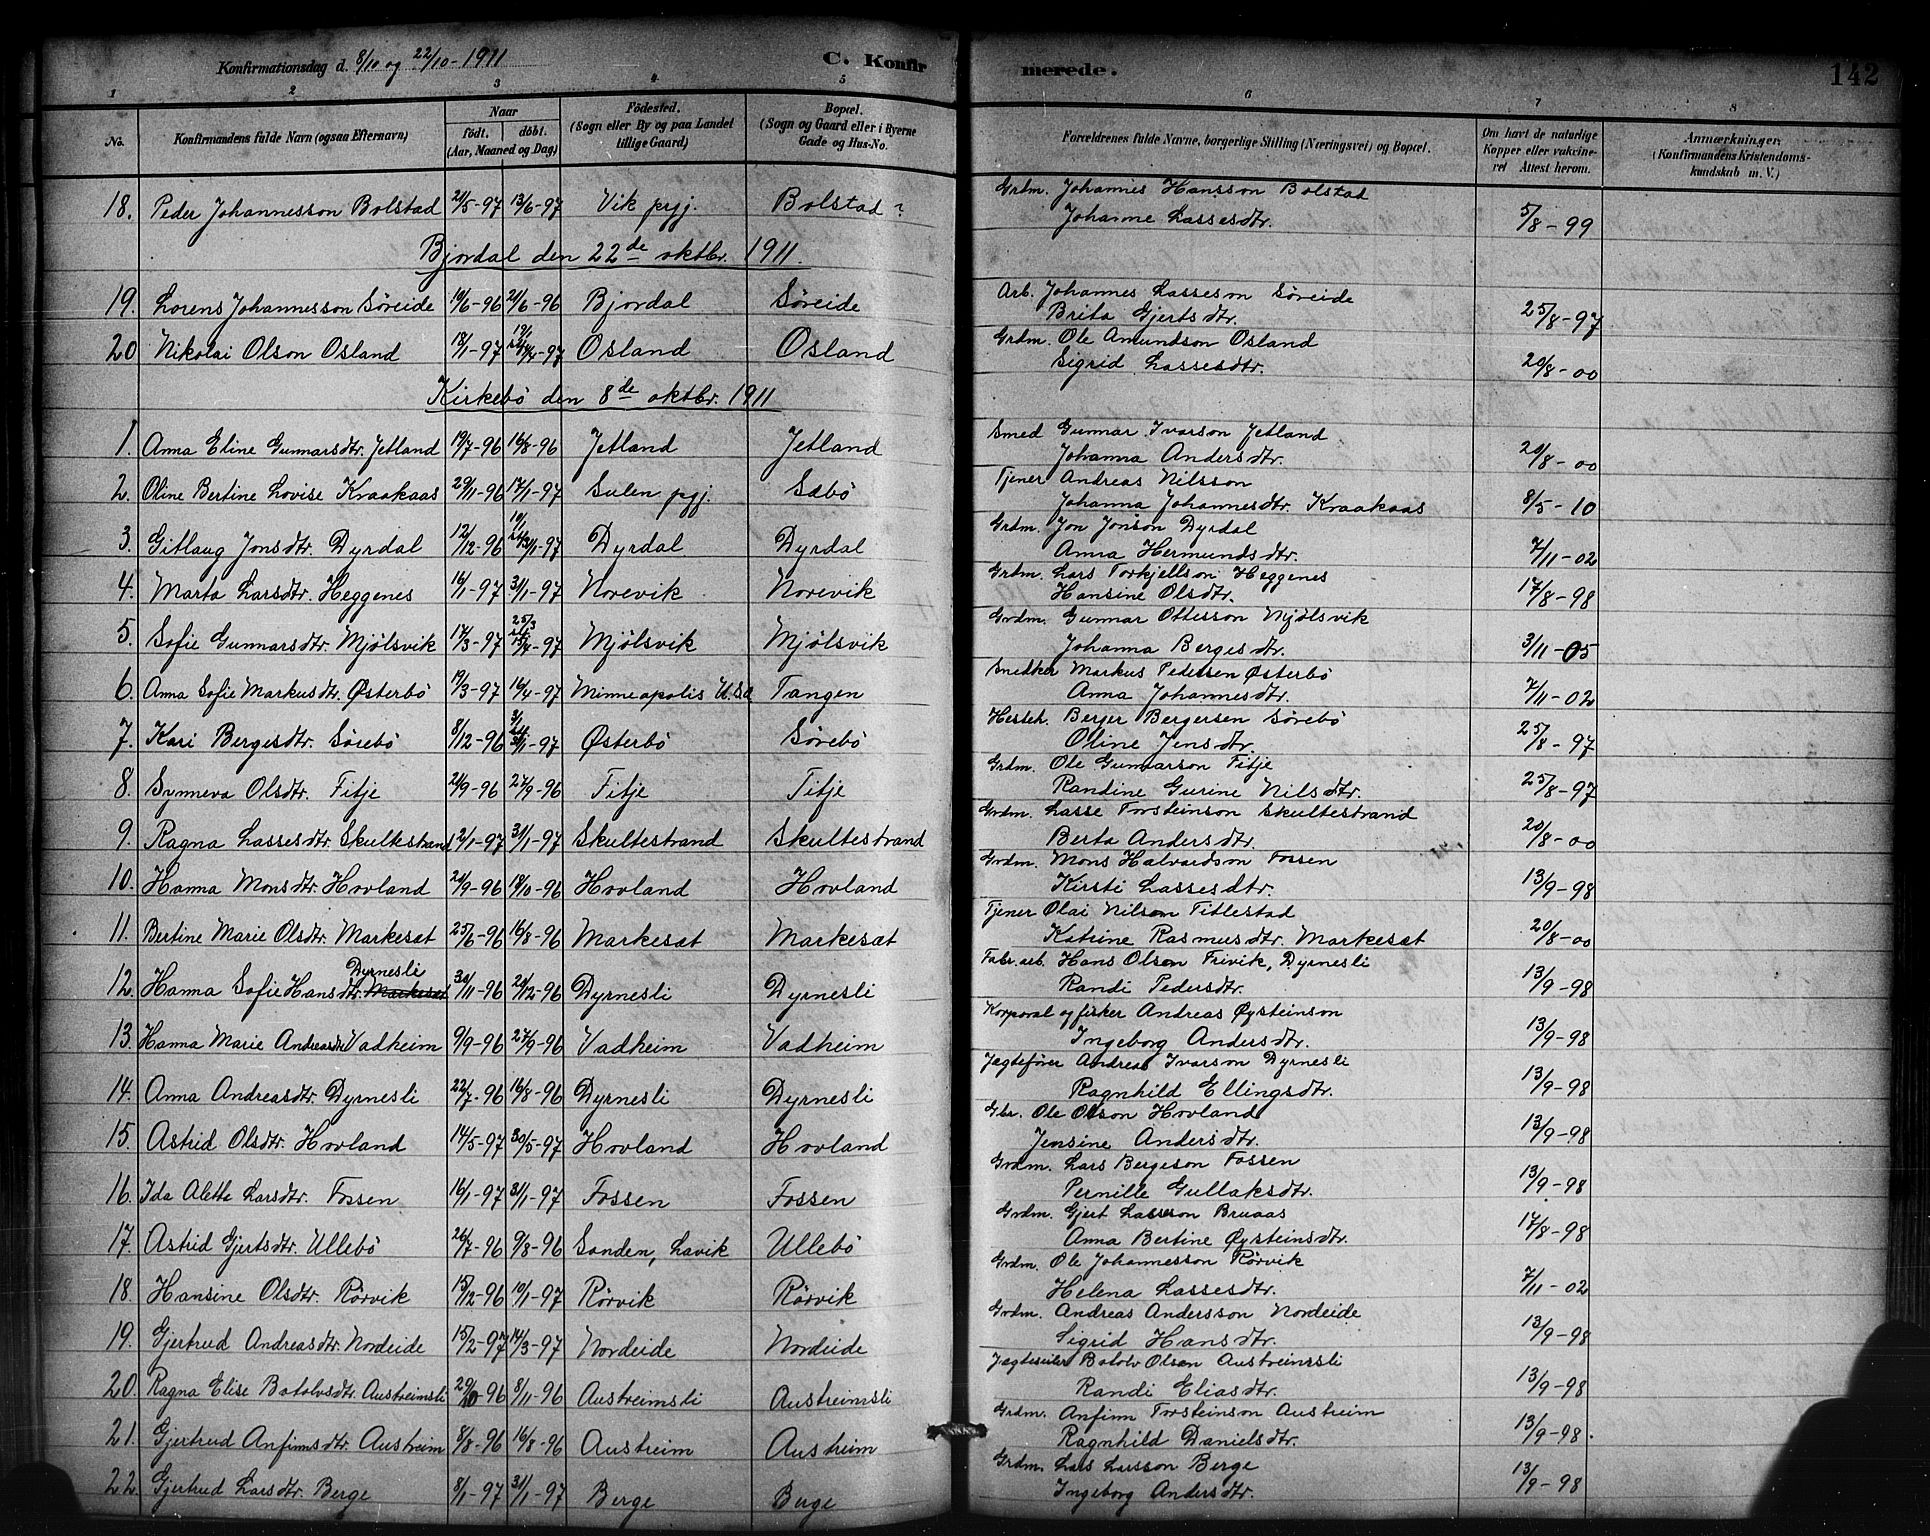 Konfirmationsdag d. 8/10 og 22/10 - 1911
C. Konfirmerede.
142
1 2 3 4 5 6 7 8
No. Konfirmandens fulde Navn (ogsaa Efternavn) Naar født. døbt. (Aar, Maaned og Dag) Födested. (Sogn eller By og paa Landet tillige Gaard) Bopæl. (Sogn og Gaard eller i Byerne Gade og Hus-No. Forældrenes fulde Navne, borgerlige Stilling (Næringsvei) og Bopæl. Om havt de naturlige Kopper eller vakcineret Attest herom. Anmærkninger. (Konfirmandens Kristendomskundskab m. V.)
18. Peder Johannesson Bolstad 21/5-97 13/6-97 Vik prgj. Bolstad Grdm. Johannes Hansson Bolstad
Johanne Lassesdtr. 5/8-99
Bjordal den 22de oktbr. 1911.
19. Lorens Johannesson Søreide 10/6-96 21/6-96 Bjordal Søreide Arb. Johannes Lasseson Søreide
Brita Gjertsdtr. 25/8-97
20 Nikolai Olson Osland 18/1-97 Osland Osland Grdm. Ole Amundson Osland
Sigrid Lassesdtr. 20/8-00
Kirkebö den 8de oktbr. 1911
1. Anna Eline Gunnarsdtr. Jetland 19/7-96 16/8-96 Jetland Jetland Smed Gunnar Ivarson Jetland
Johanna Andersdtr. 20/8-00
2. Oline Bertine Lovise Kraakaas 29/11-96 17/1-97 Sulen pgj. Sæbö Tjener Andreas Nilsson
Johanna Johannesdtr. Kraakaas 8/5-10
3. Gitlaug Jonsdtr. Dyrdal 12/12-96 Dyrdal Dyrdal Grdm. Jon Jonson Dyrdal
Anna Hermundsdtr. 7/11-02
4. Marta Larsdtr. Heggenes 16/1-97 31/1-97 Norevik Norevik Grdm. Lars Torkjellson Heggenes
Hansine Olsdtr. 17/8-98
5. Sofie Gunnarsdtr. Mjölsvik 17/3-97 Mjölsvik Mjölsvik Grdm. Gunnar Ottesson Mjölsvik
Johanna Bergesdtr. 3/11-05
6. Anna Sofie Markusdtr. Østerbö 19/3-97 16/4-97 Minneapolis U.S.a. Tangen Snedker Markus Pedersen Østerbö
Anna Johannesdtr. 7/11-02
7. Kari Bergesdtr. Sörebö 8/12-96 Østerbö Sörebö Hesteh. Berger Bergersen Sörebö
Oline Jensdtr. 25/8-97
8. Synneva Olsdtr. Fitje 21/9-96 27/9-96 Fitje Fitje Grdm. Ole Gunnarson Fitje
Randine Gurine Nilsdtr. 25/8-97
9. Ragna Lassesdtr. Skultestrand 12/1-97 31/1-97 Skultestrand Skultestrand Grdm. Lasse Torsteinson Skultestrand
Berta Andersdtr. 20/8-00
10. Hanna Monsdtr. Hovland 21/9-96 18/10-96 Hovland Hovland Grdm. Mons Halvardson Fossen
Kirsti Lassesdtr. 13/9-98
11. Bertine Marie Olsdtr. Markesæt 25/6-96 16/8-96 Markesæt Markesæt Tjener Olai Nilson Titlestad
Katrine Rasmusdtr. Markesæt 20/8-00
12. Hanna Sofie Hansdtr. Dyrnesli Markesæt 30/11-96 21/12-96 Dyrnesli Dyrnesli Fabr. arb. Hans Olsen Frivik, Dyrnesli
Randi Pedersdtr. 13/9-98
13. Hanna Marie Andreasdtr. Vadheim 9/9-96 27/9-96 Vadheim Vadheim Korporal og fisker Andreas Øysteinson
Ingeborg Andersdtr. 13/9-98
14. Anna Andreasdtr. Dyrnesli 22/7-96 16/8-96 Dyrnesli Dyrnesli Jægtefører Andreas Ivarson Dyrnesli
Ragnhild Ellingsdtr. 13/9-98
15. Astrid Olsdtr. Hovland 14/5-97 30/5-97 Hovland Hovland Gbr. Ole Olson Hovland
Jensine Andersdtr. 13/9-98
16. Ida Alette Larsdtr. Fossen 16/1-97 31/1-97 Fossen Fossen Grdm. Lars Bergeson Fossen
Pernille Gullaksdtr. 13/9-98
17. Astrid Gjertsdtr. Ullebö 26/7-96 9/8-96 Sanden, Lavik Ullebö Grdm. Gjert Lasseson Bruaas
Anna Bertine Øysteinsdtr. 17/8-98
18. Hansine Olsdtr. Rörvik 15/12-96 10/1-97 Rörvik Rörvik Grdm. Ole Johannesson Rörvik
Helena Lassesdtr. 7/11-02
19. Gjertrud Andreasdtr. Nordeide 15/2-97 14/3-97 Nordeide Nordeide Grdm. Andreas Andersson Nordeide
Sigrid Hansdtr. 13/9-98
20. Ragna Elise Batolvsdtr. Austreimsli 29/10-96 8/11-96 Austreimsli Austreimsli Jægteseiler Batolv Olsen Austreimsli
Randi Eliasdtr. 13/9-98
21. Gjertrud Anfinnsdtr. Austreim 8/8-96 16/8-96 Austreim Austreim Grdm. Anfinn Torsteinson Austreim
Ragnhild Danielsdtr. 13/9-98.
22. Gjertrud Larsdtr. Berge 8/1-97 31/1-97 Berge Berge Grdm. Lars Larsson Berge
Ingeborg Andersdtr. 13/9-98